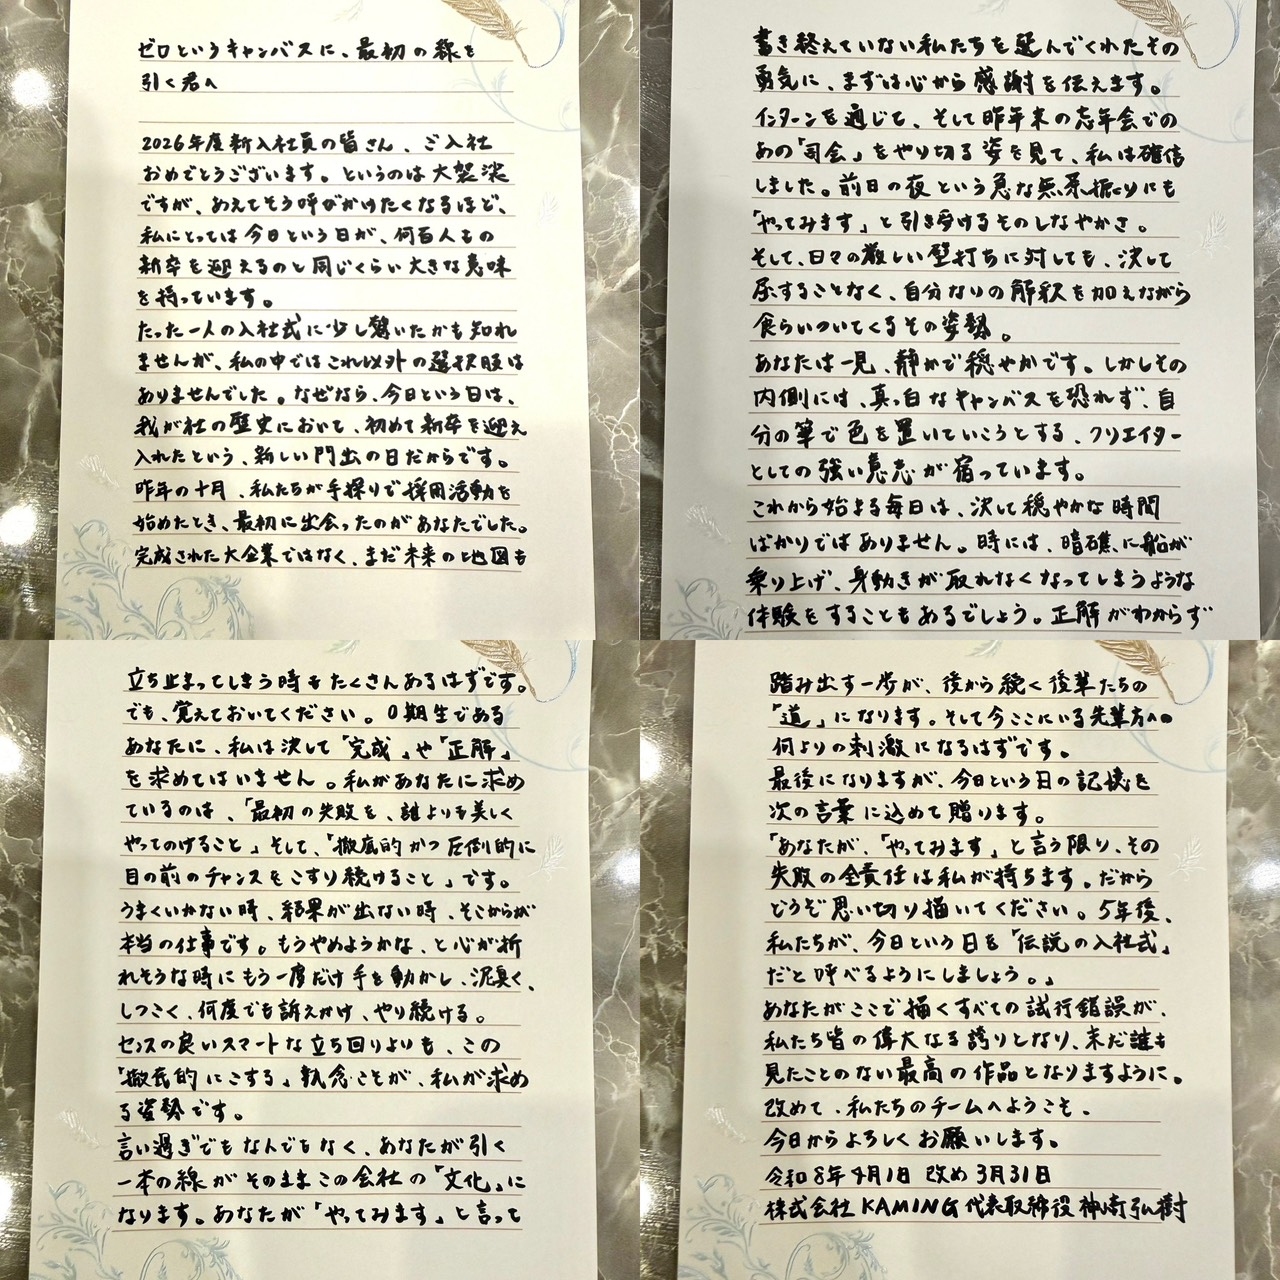 ゼロというキャンバスに、最初の線を
引く君へ
2026年度新入社員の皆さん、ご入社
おめでとうございます。というのは大袈裟
ですが、あえてそう呼びかけたくなるほど、
私にとっては今日という日が、何百人もの
新卒を迎えるのと同じくらい大きな意味
を持っています。
たった一人の入社式に少し驚いたかも知れ
ませんが、私の中ではこれ以外の選択肢は
ありませんでした。なぜなら、今日という日は、
我が社の歴史において、初めて新卒を迎え
入れたという、新しい門出の日だからです。
昨年の十月、私たちが手探りで採用活動を
始めたとき、最初に出会ったのがあなたでした。
完成された大企業ではなく、まだ未来の地図も
書き終えていない私たちを選んでくれたその
勇気に、まずは心から感謝を伝えます。
インターンを通じて、そして昨年末の忘年会での
あの「司会」をやり切る姿を見て、私は確信
しました。前日の夜という急な無茶振りにも
「やってみます」と引き受けるそのしなやかさ。
そして、日々の厳しい壁打ちに対しても、決して
屈することなく、自分なりの解釈を加えながら
食らいついてくるその姿勢。
あなたは一見、静かで穏やかです。しかしその
内側には、真っ白なキャンバスを恐れず、自
分の筆で色を置いていこうとする、クリエイター
としての強い意志が宿っています。
これから始まる毎日は、決して穏やかな時間
ばかりではありません。時には、暗礁に船が
乗り上げ、身動きが取れなくなってしまうような
体験をすることもあるでしょう。正解がわからず
立ち止まってしまう時もたくさんあるはずです。
でも、覚えておいてください。0期生である
あなたに、私は決して「完成」や「正解」
を求めてはいません。私があなたに求め
ているのは、「最初の失敗を、誰よりも美しく
やってのけること」そして、「徹底的かつ圧倒的に
目の前のチャンスをこすり続けること」です。
うまくいかない時、結果が出ない時、そこからが
本当の仕事です。もうやめようかな、と心が折
れそうな時にもう一度だけ手を動かし、泥臭く、
しつこく、何度でも訴えかけ、やり続ける。
センスの良いスマートな立ち回りよりも、この
「徹底的にこする」執念こそが、私が求め
る姿勢です。
言い過ぎでもなんでもなく、あなたが引く
一本の線がそのままこの会社の「文化」に
なります。あなたが「やってみます」と言って
踏み出す一歩が、後から続く後輩たちの
「道」になります。そして今ここにいる先輩方への
何よりの刺激になるはずです。
最後になりますが、今日という日の記憶を
次の言葉に込めて贈ります。
「あなたが、「やってみます」と言う限り、その
失敗の全責任は私が持ちます。だから
どうぞ思い切り描いてください。5年後、
私たちが、今日という日を「伝説の入社式」
だと呼べるようにしましょう。」
あなたがここで描くすべての試行錯誤が、
私たち皆の偉大なる誇りとなり、未だ誰も
見たことのない最高の作品となりますように。
改めて、私たちのチームへようこそ、
今日からよろしくお願いします。
令和8年4月1日 改め3月31日
株式会社KAMING代表取締役 神崎弘樹